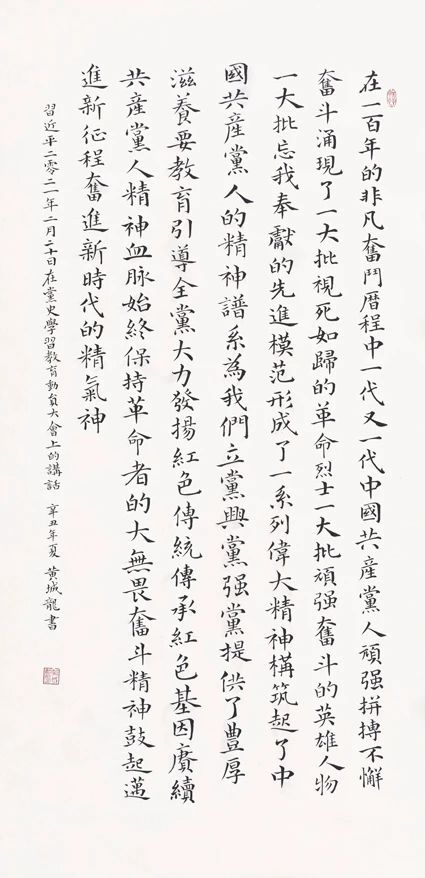 在一百年的非凡奮鬥歷程中一代又一代中國共產黨人頑强拼搏不懈
奮斗涌現了一大批視死如歸的革命烈士一大批頑强奮斗的英雄人物
一大批忘我奉獻的先進模范形成了一系列偉大精神構筑起了中
國共產黨人的精神譜系為我們立黨興黨强黨提供了豊厚
滋養要教育引導全黨大力發揚紅色傳統傳承紅色基因賡續
共產黨人精神血脉始終保持革命者的大無畏奮斗精神鼓起邁
進新征程奮進新時代的精氣神
習近平二零二一年二月二十日在黨史學習教育動員大會上的講話 辛丑年夏 黃城龍書